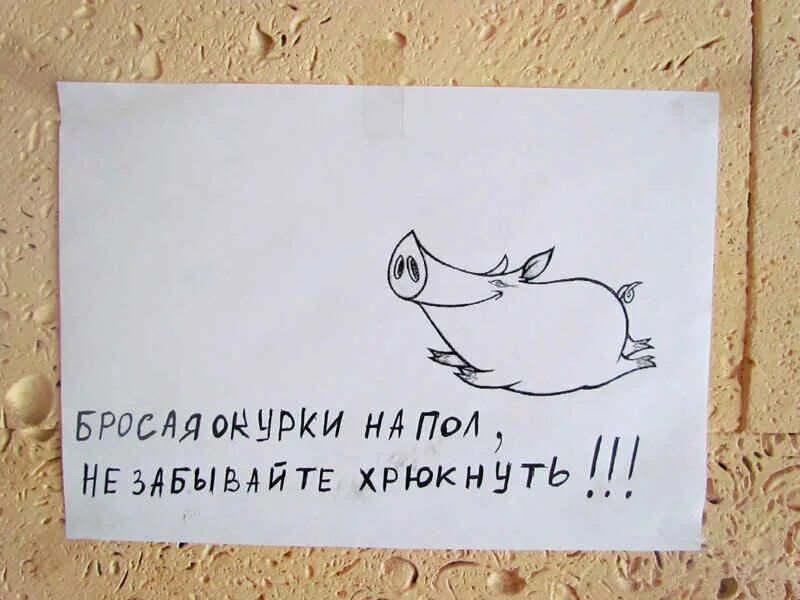 БРОСАЯ ОКУРКИ НА ПОЛ,
НЕ ЗАБЫВАЙТЕ ХРЮКНУТЬ!!!